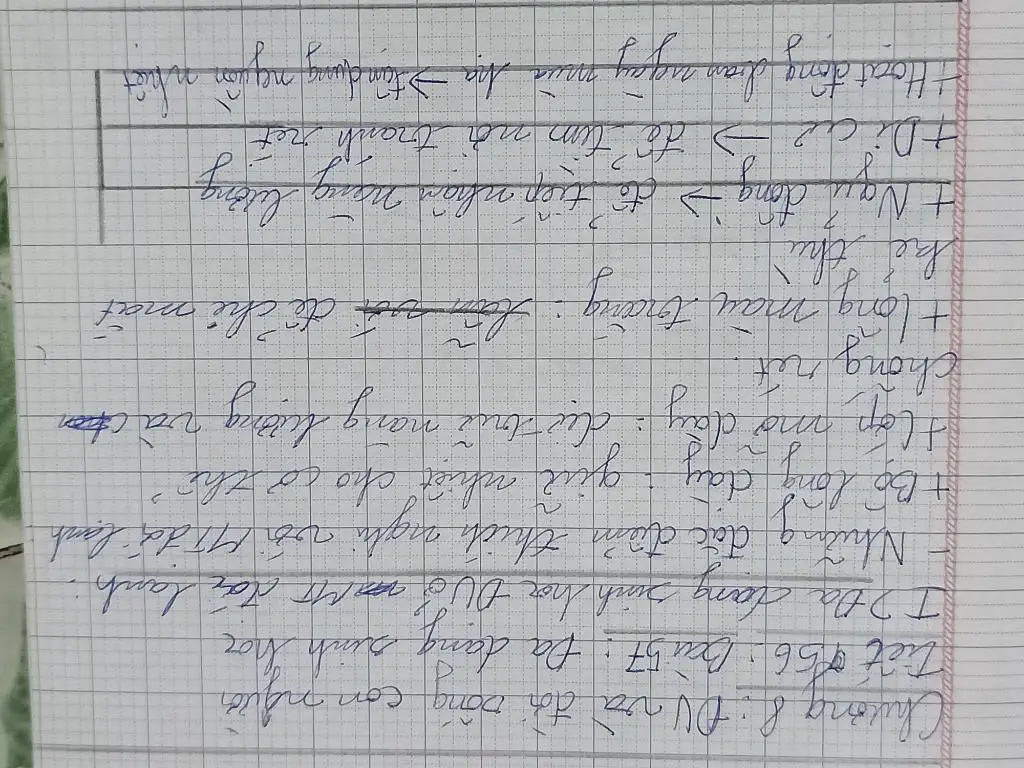 Chương 8: ĐV và đời sống con người
Tiết 56: Bài 57: Đa dạng sinh học
I> Đa dạng sinh học ĐV ở MT đới lạnh:
- Những đặc điểm thích nghi với MT đới lạnh
+ Bộ lông dày: giữ nhiệt cho cơ thể
+ Lớp mỡ dày: dự trữ năng lượng và
chống rét.
+ lông màu trắng: để che mắt
kẻ thù
+ Ngủ đông → để tiếp nhận năng lượng
+ Di cư → để tìm nơi tránh rét
+ Hoạt động ban ngày mùa hạ → tận dụng nguồn nhiệt